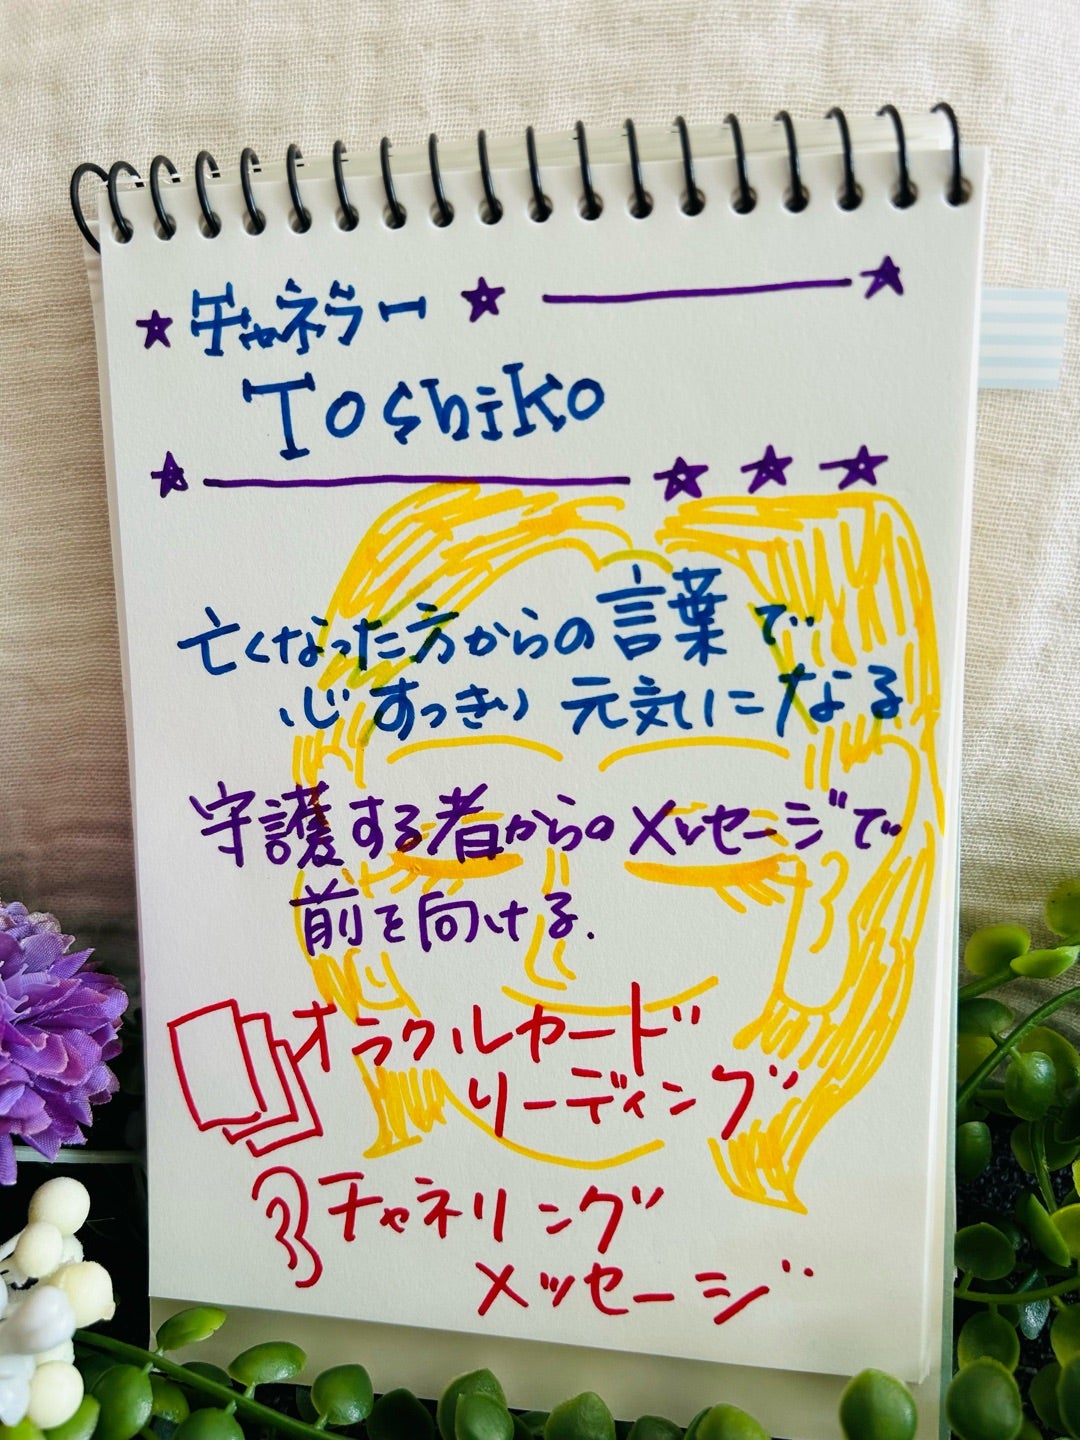 チャネラー
Toshiko
亡くなった方からの言葉で
心すっきり元気になる
守護する者からのメッセージで
前を向ける.
オラクルカード
リーディング
チャネリング
メッセージ